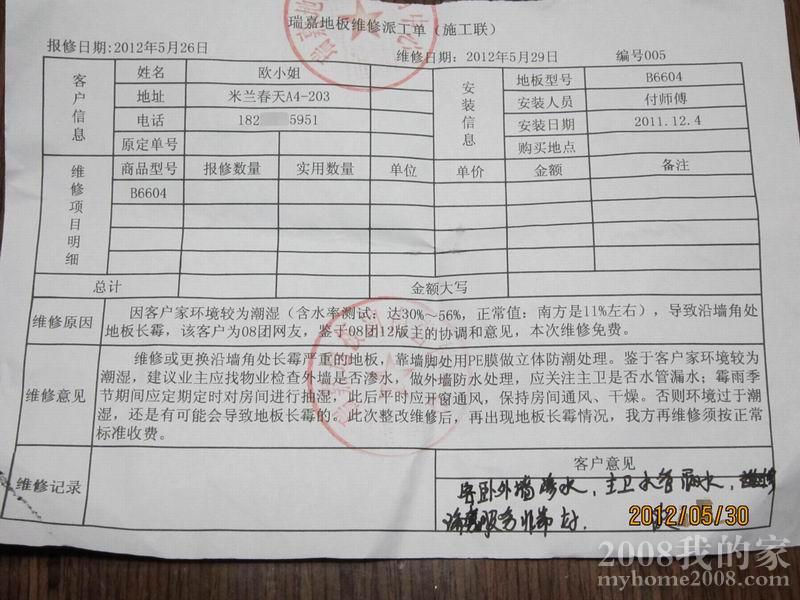 瑞嘉地板维修派工单（施工联）
报修日期:2012年5月26日 维修日期: 2012年5月29日 编号005
客户信息 姓名 欧小姐 安装信息 地板型号 B6604
地址 米兰春天A4-203 安装人员 付师傅
电话 182 5951 安装日期 2011.12.4
原定单号 购买地点
维修项目明细 商品型号 报修数量 实用数量 单位 单价 金额 备注
B6604
总计 金额大写
维修原因 因客户家环境较为潮湿（含水率测试：达30%～56%，正常值：南方是11%左右），导致沿墙角处
地板长霉，该客户为08团网友，鉴于08团12版主的协调和意见，本次维修免费。
维修意见 维修或更换沿墙角处长霉严重的地板，靠墙脚处用PE膜做立体防潮处理。鉴于客户家环境较为
潮湿，建议业主应找物业检查外墙是否渗水，做外墙防水处理，应关注主卫是否水管漏水；霉雨季
节期间应定期定时对房间进行抽湿，此后平时应开窗通风，保持房间通风、干燥。否则环境过于潮
湿，还是有可能会导致地板长霉的。此次整改维修后，再出现地板长霉情况，我方再维修须按正常
标准收费。
维修记录 客户意见
客卧外墙渗水，主卫水管漏水，
瑞嘉服务非常好.
2012/05/30
2008我的家
myhome2008.com